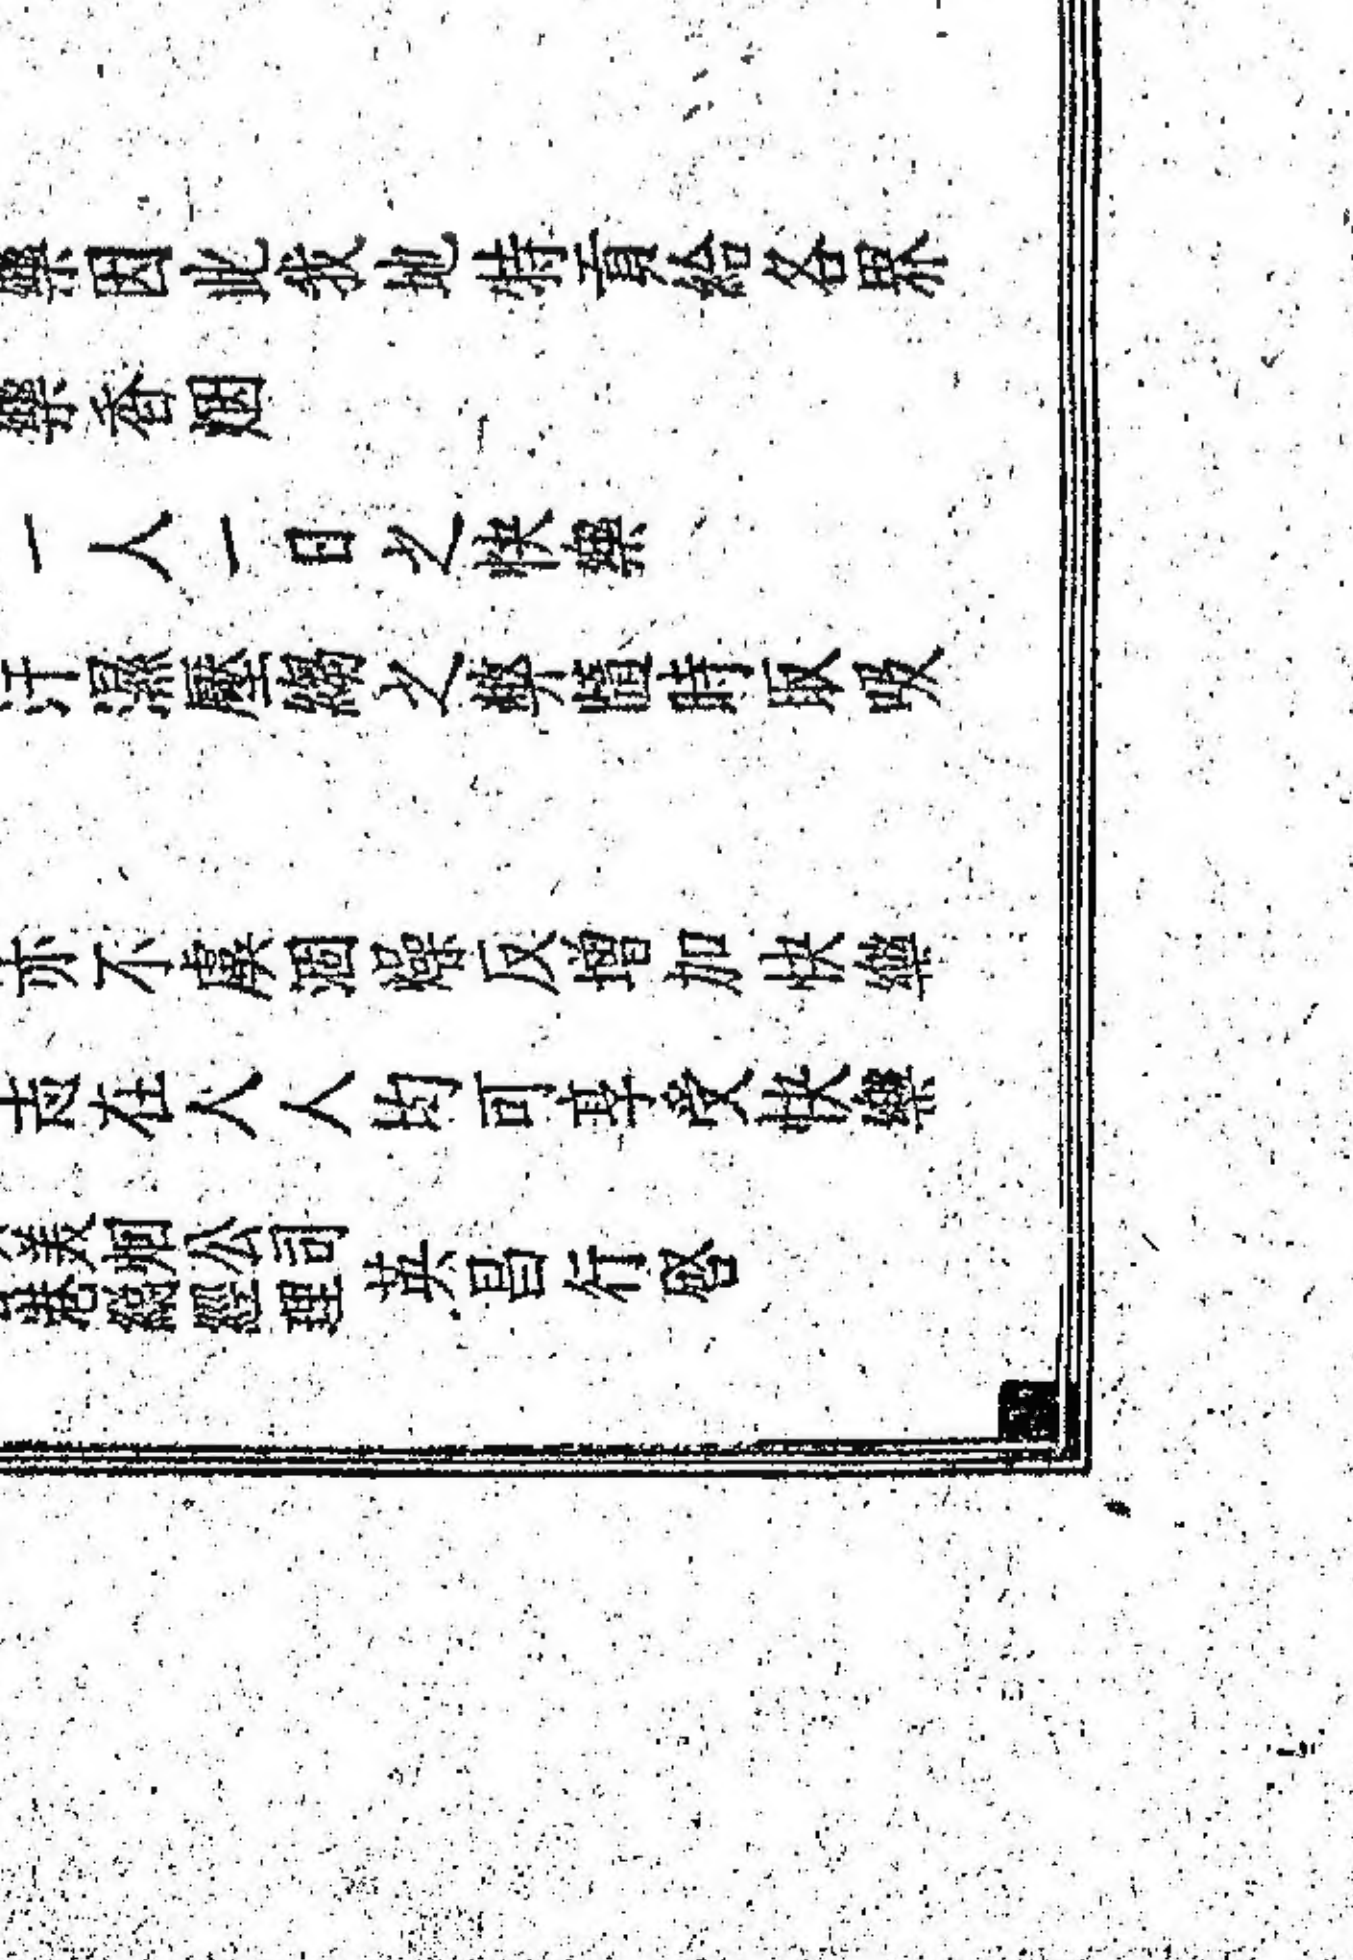 樂因此我地特貢給各界
樂香烟
一人一日之快樂
汗濕之際時取吸
亦不燥反增加快樂
志在人人均可享受快樂
美烟公司
港總經理
英昌行啓